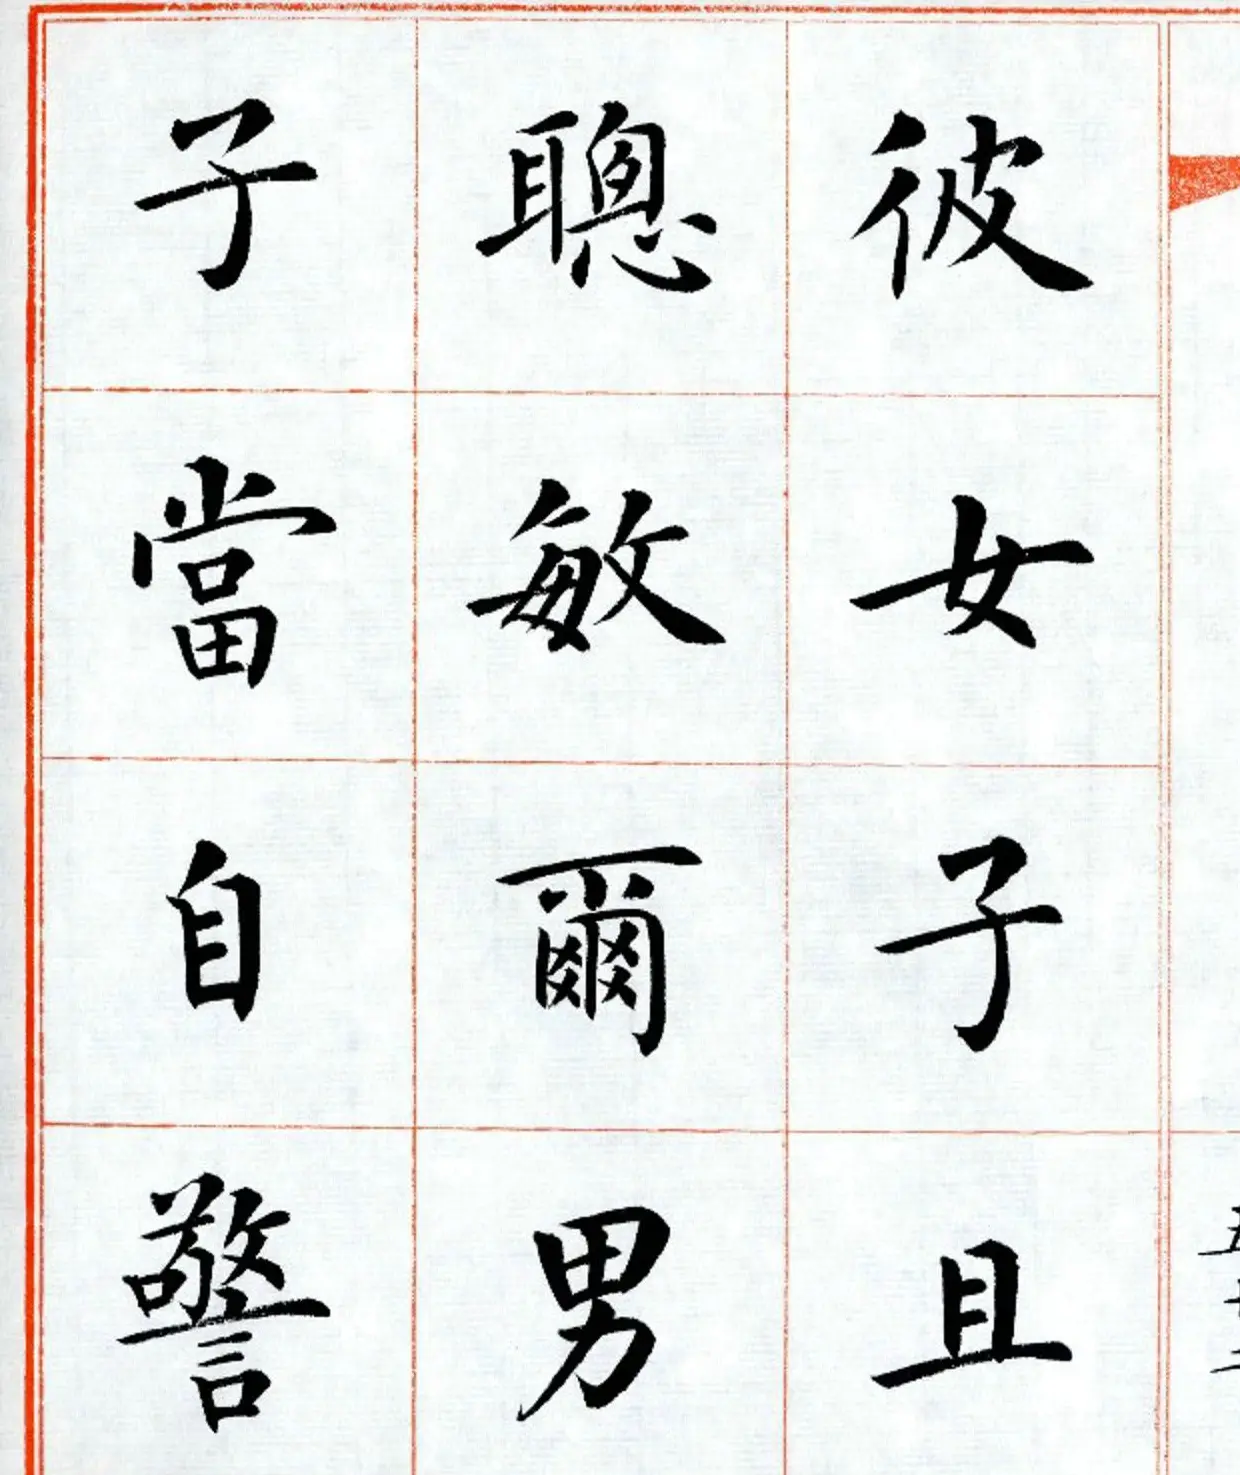 彼女子且
聰敏爾男
子當自警